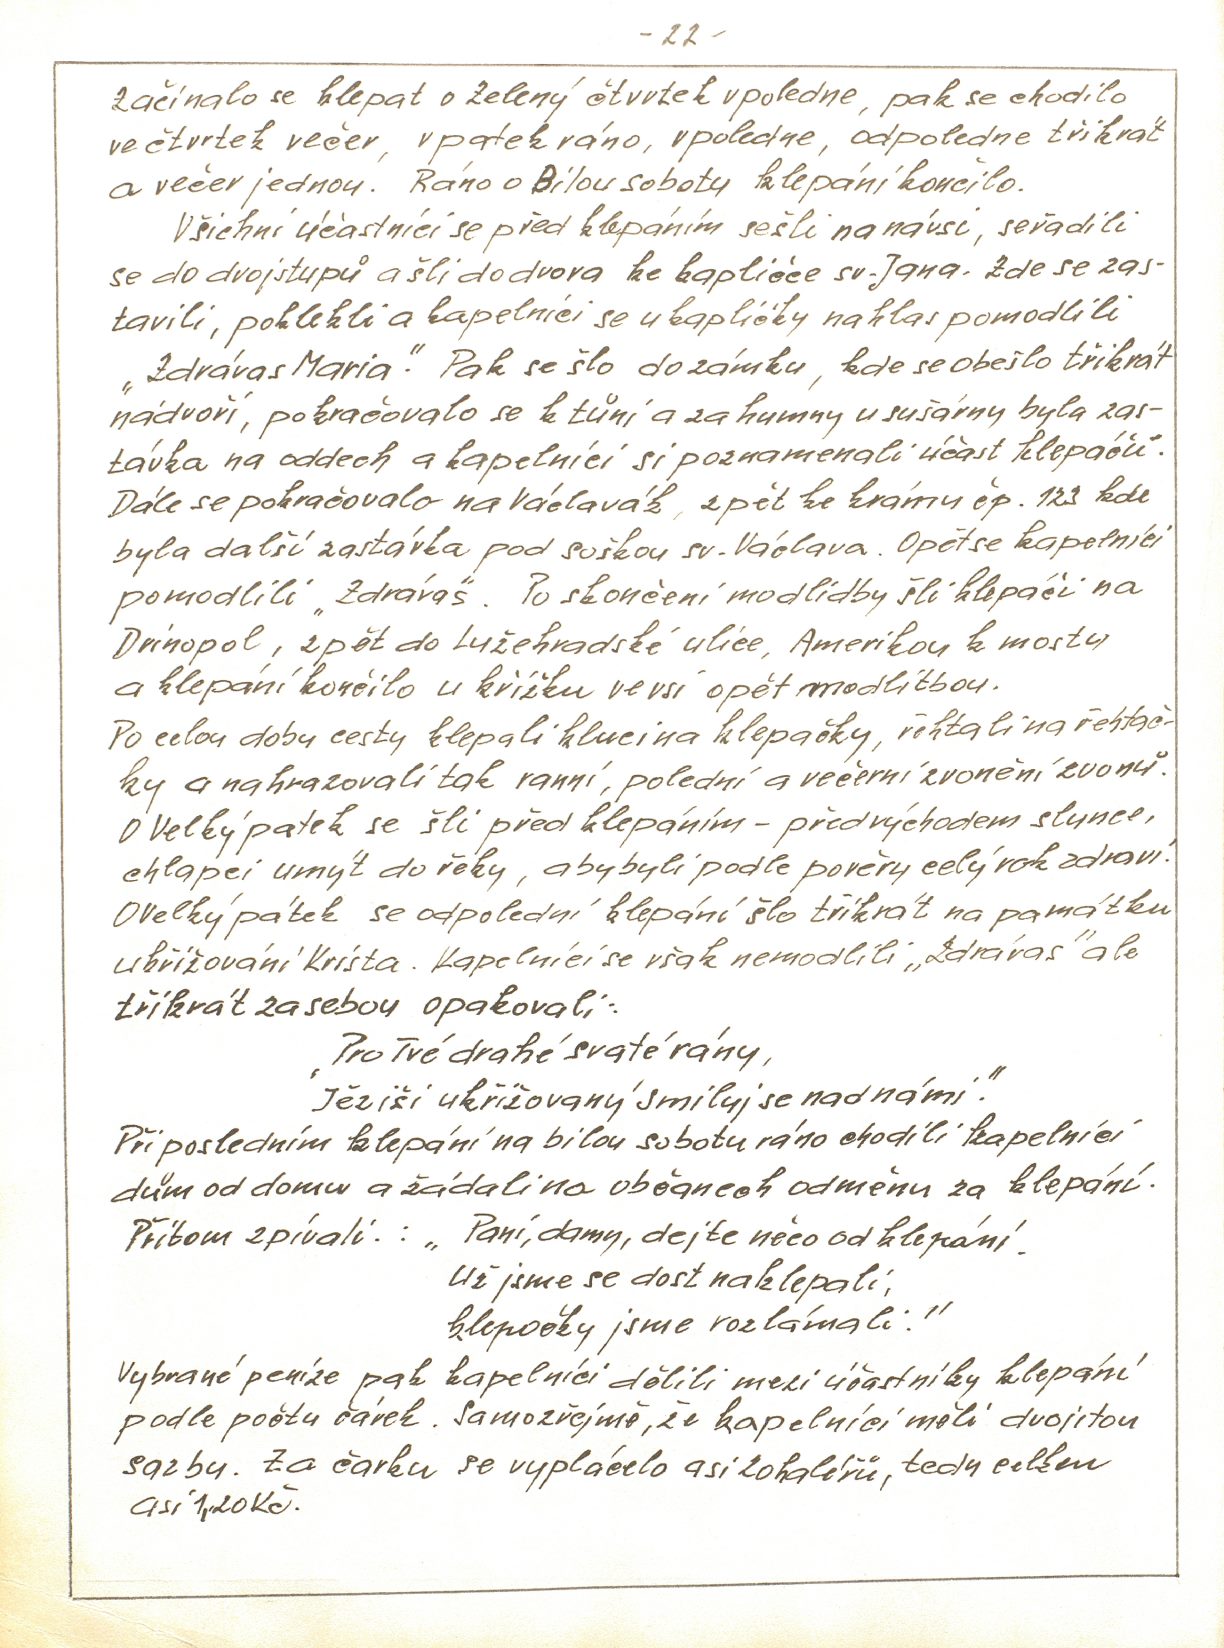 - 22 -
Začínalo se klepat o Zelený čtvrtek v poledne, pak se chodilo
ve čtvrtek večer, v pátek ráno, v poledne, odpoledne třikrát
a večer jednou. Ráno o Bílou sobotu klepání končilo.
Všichni účastníci se před klepáním sešli na návsi, seřadili
se do dvojstupů a šli do dvora ke kapličce sv. Jana. Zde se zas-
tavili, poklekli a kapelníci se u kapličky nahlas pomodlili
„Zdrávas Maria". Pak se šlo do zámku, kde se obešlo třikrát
nádvoří, pokračovalo se k tůni a za humny u sušárny byla zas-
távka na oddech a kapelníci si poznamenali účast klepáčů.
Dále se pokračovalo na Václavák, zpět ke krámu čp. 123 kde
byla další zastávka pod soškou sv. Václava. Opět se kapelníci
pomodlili „Zdrávas". Po skončení modlidby šli klepáči na
Drinopol, zpět do Lužehradské ulice, Amerikou k mostu
a klepání končilo u křížku ve vsi opět modlitbou.
Po celou dobu cesty klepali kluci na klepačky, řehtali na řehtač-
ky a nahrazovali tak ranní, polední a večerní zvonění zvonů.
O Velký pátek se šli před klepáním - před východem slunce,
chlapci umýt do řeky, aby byli podle pověry celý rok zdraví.
O Velký pátek se odpolední klepání šlo třikrát na památku
ukřižování Krista. Kapelníci se však nemodlili „Zdrávas" ale
třikrát za sebou opakovali:
„Pro Tvé drahé svaté rány,
Ježíši ukřižovaný smiluj se nad námi."
Při posledním klepání na bílou sobotu ráno chodili kapelníci
dům od domu a žádali na občanech odměnu za klepání.
Přitom zpívali.: „Paní, damy, dejte něco od klepání.
Už jsme se dost naklepali,
klepačky jsme rozlámali."
Vybrané peníze pak kapelníci dělili mezi účastníky klepání
podle počtu čárek. Samozřejmě, že kapelníci měli dvojitou
sazbu. Za čárku se vyplácelo asi 20 haléřů, tedy celkem
asi 1,20 Kč.